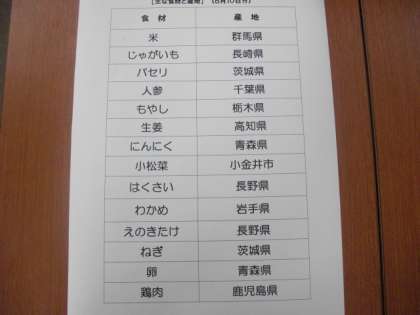 【主な食材と産地】 (6月10日分)
食 材 産 地
米 群馬県
じゃがいも 長崎県
パセリ 茨城県
人参 千葉県
もやし 栃木県
生姜 高知県
にんにく 青森県
小松菜 小金井市
はくさい 長野県
わかめ 岩手県
えのきたけ 長野県
ねぎ 茨城県
卵 青森県
鶏肉 鹿児島県